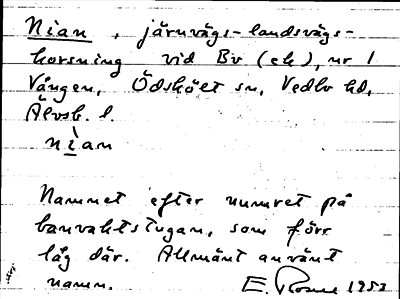 Nian, järnvägs-landsvägs-
korsning vid Bv (ek), nr 1
Vången, Ödskölt sn, Vedbo hd,
Älvsb. l.
nìan
Namnet efter numret på
banvaktstugan, som förr
låg där. Allmänt använt
namn. E. 1953